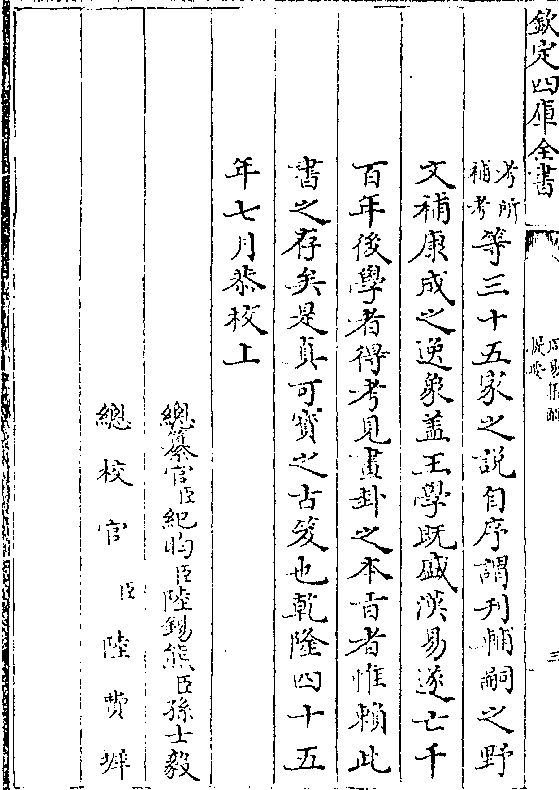 欽定四庫全書
提要
三
考所補考等三十五家之説自序謂刋輔嗣之野
文補康成之逸象盖王學既盛漢易遂亡千
百年後學者得考見畫卦之本㫖者惟賴此
書之存矣是真可寶之古笈也乾隆四十五
年七月恭校上
總纂官臣紀昀臣陸錫熊臣孫士毅
總校官臣陸費墀